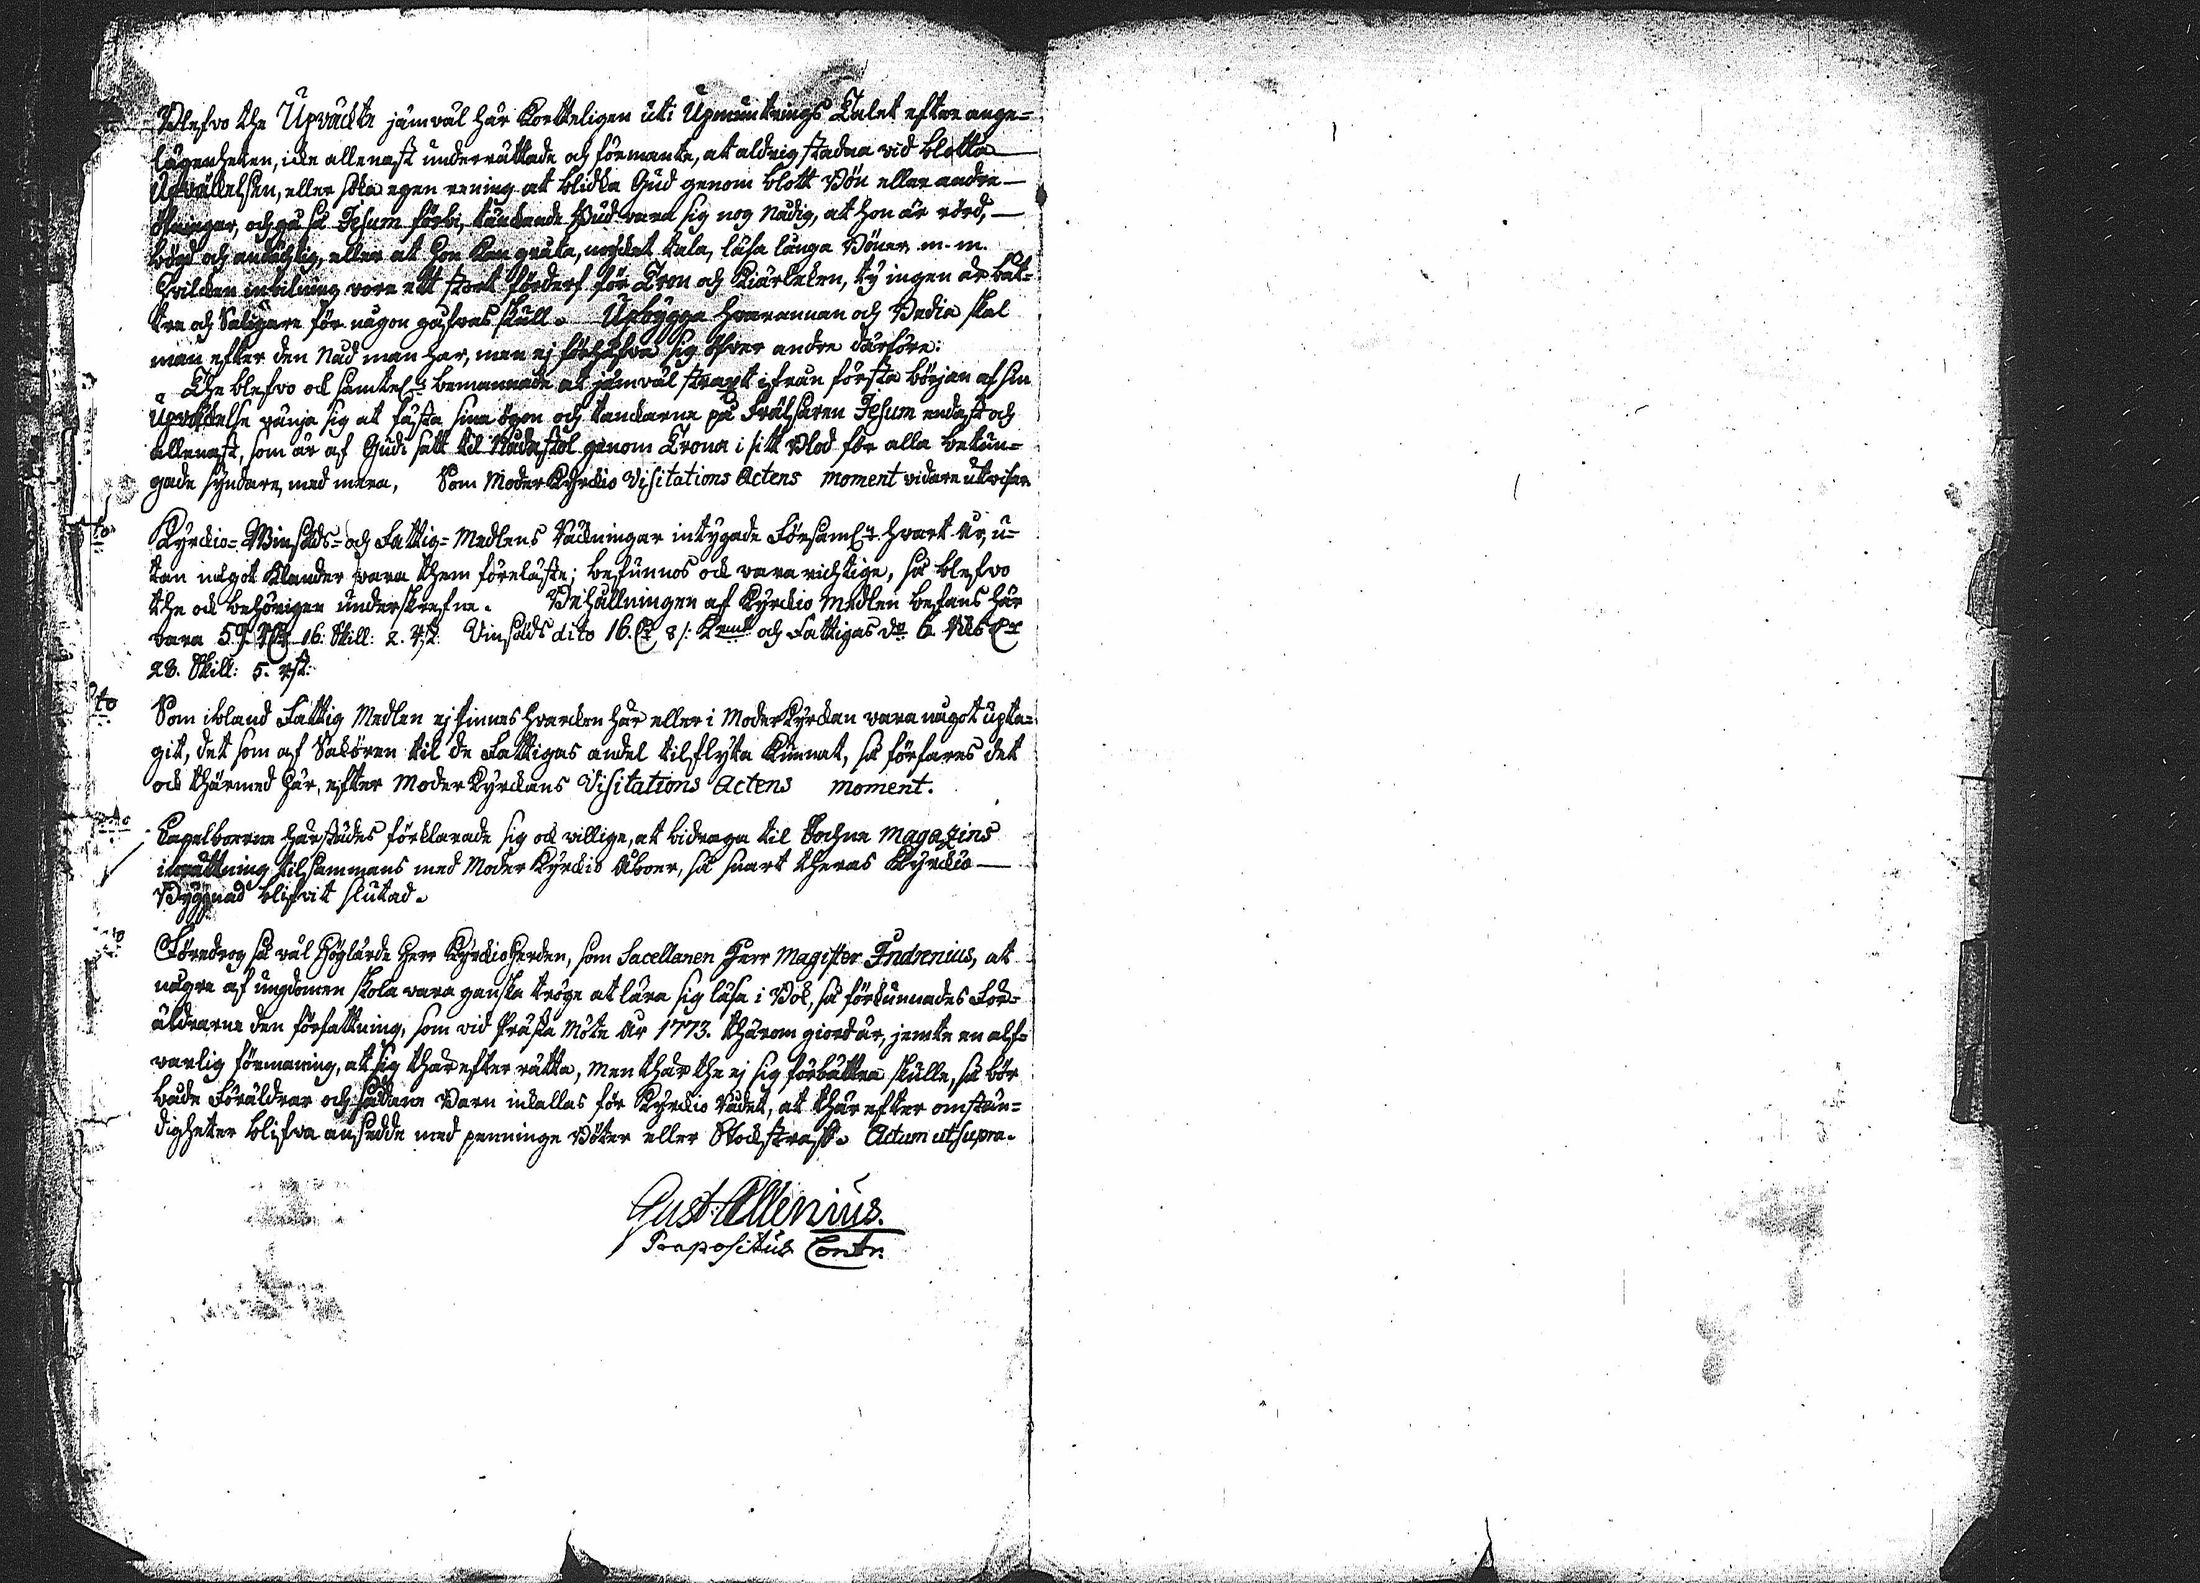 Blefvo the Upväckte jämväl här kortteligen uti Upmuntrings Talet efter ange-
lägenheten, icke allenast underrättade och förmante, at aldrig stadna vid blotta
Upväckelsen, eller söka egen rening at blidka Gud genom blott Bön eller andra
öfningar, och gå så Jesum förbi, tänckande Gud vara sig nog Nådig, at hon är rörd,
böjd och andäcktig, eller at hon kan gråta, mycket tala, läsa långa Böner m. m.
hvilcken inbilning vore ett stort förderf för Tron och Kiärleken, ty ingen är bät-
tre och Saligare för någon gåfvas skull. Upbygga hvarannan och Bedia skal
man efter den Nåd man har, men ej förhäfva sig öfver andre därföre:
The blefvo ock samtel. bemannade at jämväl straxt ifrån första början af sin
Upväckelse vänja sig at fästa sina ögon och tanckarne på Frälsaren Jesum endast och
allenast, som är af Gudi satt til Nådastol genom Trona i sitt Blod för alla betun-
gade syndare, med mera, Som Moder Kyrckio Visitations Actens moment vidare utvisar
5to Kyrckio- Winsäds- och Fattig- Medlens Räckningar intygade Församl. hvart År, u-
tan något klander vara them föreläste; befunnos ock vara richtige, så blefvo
the ock behörigen underskrefne. Behållningen af Kyrckio Medlen befans här
vara 57. 16. Skill: 2. rst. Vinsäds dito 16. 8 /: och Fattigas do 6. Riks
28. Skill: 5. rst.
to Som ibland Fattig Medlen ej finnes hvarcken här eller i Moder Kyrckan vara något upta-
git, det som af Saköron til de Fattigas andel tilflyta kunnat, så förfares det
ock thärmed här, efter Moder Kyrckans Visitations Actens moment.
to Capelboerne härstädes förklarade sig ock villige, at bidraga til Sochne Magazins
inrättning tilsammans med Moder Kyrckio Åboer, så snart theras Kyrckio
Byggnad blifvit slutad.
to Föredrog så väl Höglärde Herr Kyrckio Herden, som Sacellanen Herr Magister Indrenius, at
någre af ungdomen skola vara ganska tröge at lära sig läsa i Bok, så förkunnades För-
äldrarne den författning, som vid Prästa Möte År 1773. thärom giord är, jemte en alf-
varlig förmaning, at sig thärefter rätta, men thär the ej sig förbättra skulle, så bör
både Föräldrar och sådane Barn inkallas för Kyrckio Rådet, at thär efter omstän-
digheter blifva ansedde med penninge Böter eller Stockstraff. Actum ut supra.
Gust: Allenius.
Præpositus Contr.